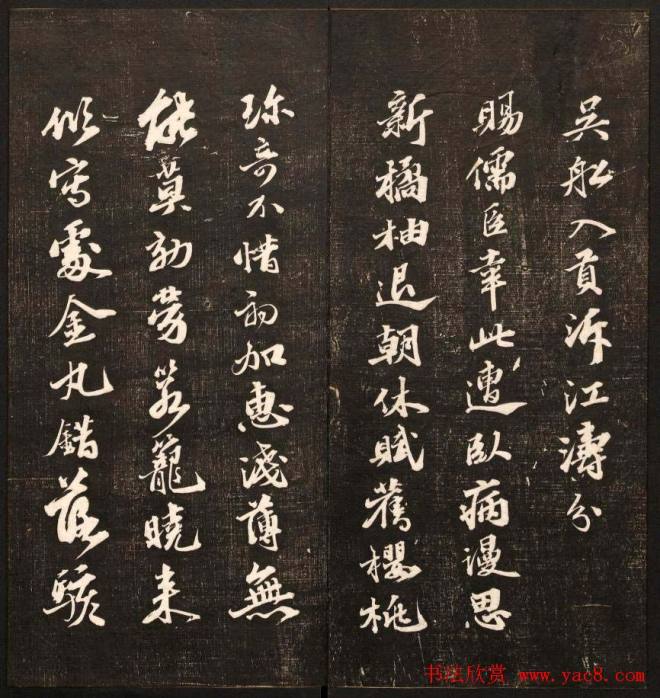 吳舩入貢泝江濤分
賜儒臣幸此遭臥病謾思
新橘柚退朝休賦舊櫻桃
珎奇不惜初加惠淺薄無
能莫効勞筠籠曉来
傾寫處金丸錯落駭
书法欣赏 www.yac8.com